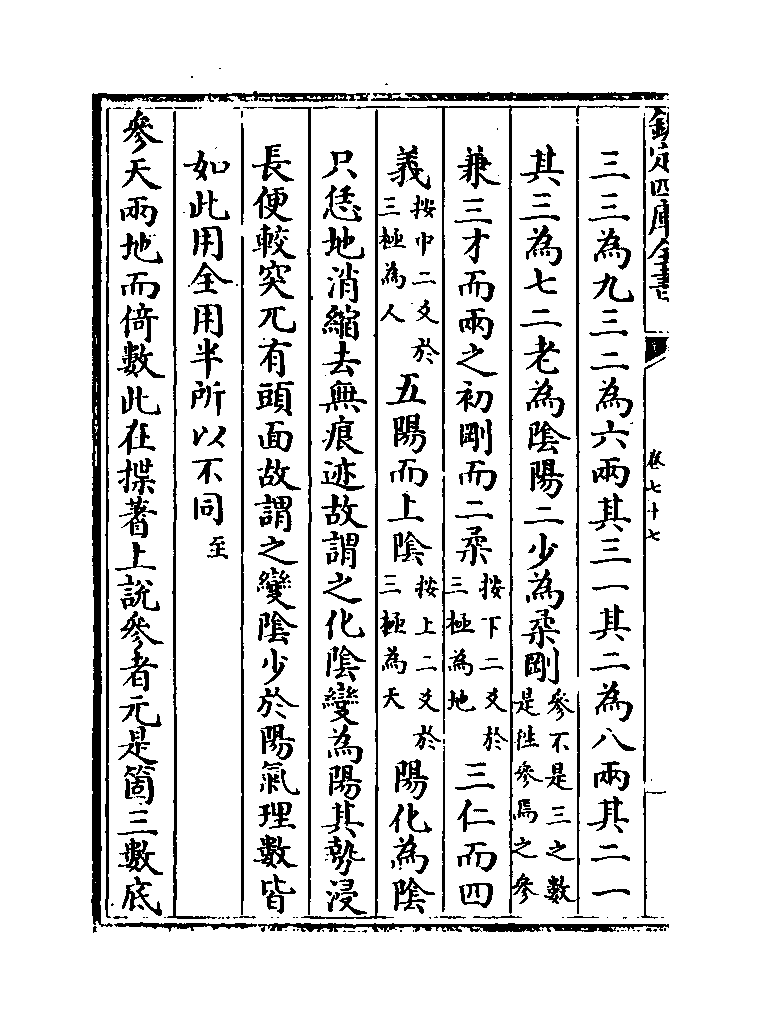 欽定四庫全書
卷七十七
三三為九三二為六兩其三一其二為八兩其二一
其三為七二老為陰陽二少為柔剛參不是三之數是往參焉之參
兼三才而兩之初剛而二柔按下二爻於三極為地三仁而四
義按中二爻於三極為人五陽而上陰按上二爻於三極為天陽化為陰
只恁地消縮去無痕迹故謂之化陰變為陽其勢浸
長便較突兀有頭面故謂之變陰少於陽氣理數皆
如此用全用半所以不同至
參天兩地而倚數此在揲蓍上說參者元是箇三數底